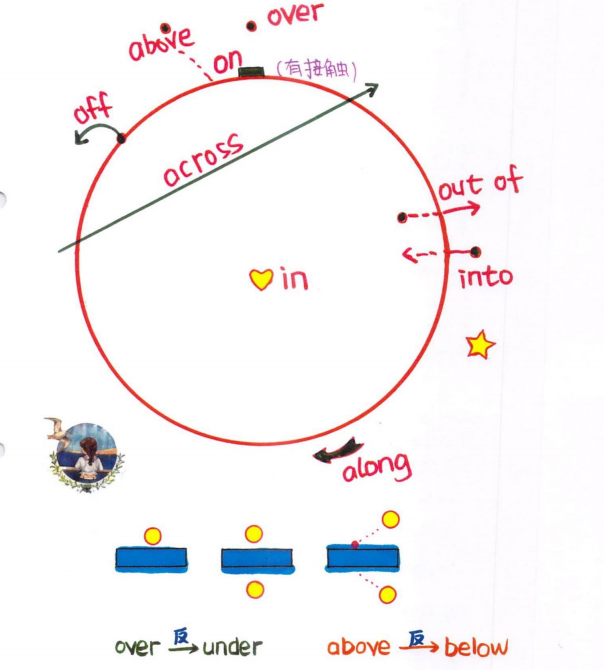 over
above
on (有接触)
off
across
out of
in
into
along
over 反 under
above 反 below